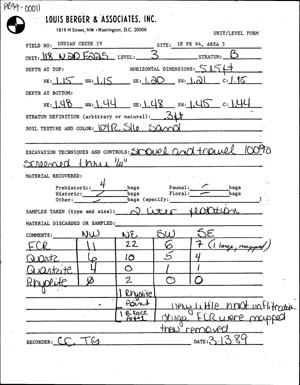 PR94-00011
LOUIS BERGER & ASSOCIATES, INC.
1819 H Street, NW • Washington, D.C. 20006
UNIT/LEVEL FORM
FIELD NO: INDIAN CREEK IV SITE: 18 PR 94, AREA 3
UNIT: 118 N20 E225 LEVEL: 3 STRATUM: B
DEPTH AT TOP: HORIZONTAL DIMENSIONS: 5x5ft
NE: 1.15 NW: 1.15 SE: 1.20 SW: 1.21 C: 1.15
DEPTH AT BOTTOM:
NE: 1.48 NW: 1.44 SE: 1.48 SW: 1.45 C: 1.44
STRATUM DEFINITION (arbitrary or natural): .3ft
SOIL TEXTURE AND COLOR: 10YR 5/6 Sand
EXCAVATION TECHNIQUES AND CONTROLS: shovel and trowel 100%
screened thru 1/4"
MATERIAL RECOVERED:
Prehistoric: 4 bags Faunal: bags
Historic: bags Floral: bags
Other: bags (specify: )
SAMPLES TAKEN (type and size): 2 liter flotation
MATERIAL DISCARDED OR SUBSAMPLED:
COMMENTS: NW NE SW SE
FCR 11 22 6 7 (1 large, mapped)
Quartz 6 10 5 4
Quartzite 4 0 1 1
Rhyolite 0 2 0 0
1 Rhyolite
Point
1 Biface
very little root infiltration
FCR were mapped
then removed
RECORDER: CC TG DATE: 3-13-89